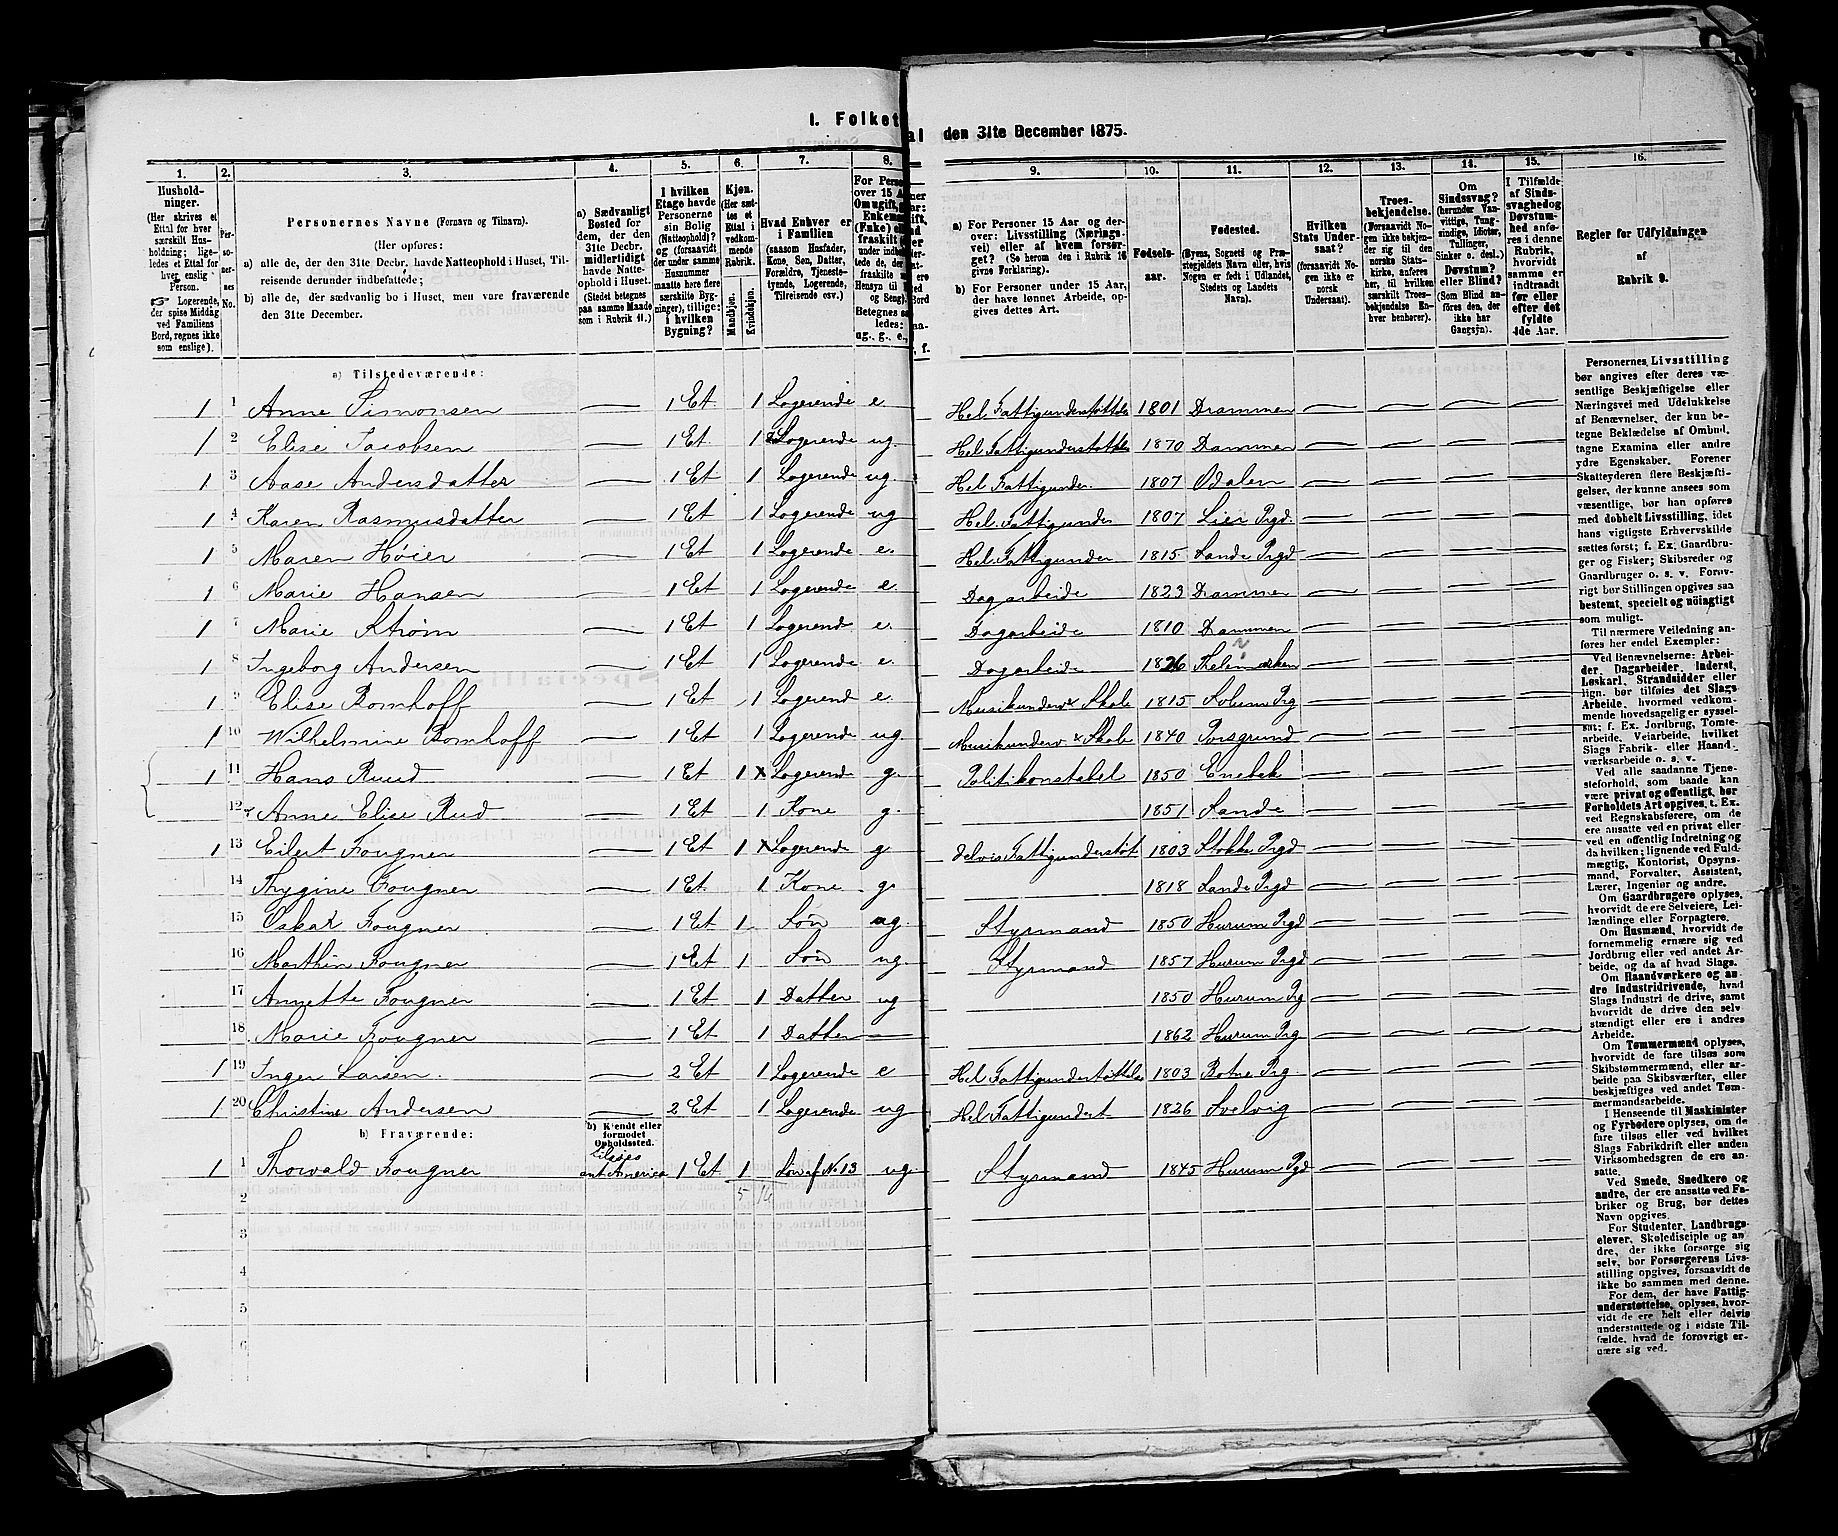 I. Folketal den 31te December 1875.
1. 2. 3. 4. 5. 6. 7. 8. 9. 10. 11. 12. 13. 14. 15. 16.
Husholdninger. (Her skrives et Ettal for hver særskilt Husholdning; ligeledes et Ettal for hver enslig Person. ☞ Logerende, der spise Middag ved Familiens Bord, regnes ikke som enslige).
Personernes No.
Personernes Navne (Fornavn og Tilnavn).
(Her opføres:
a) alle de, der den 31te Decbr. havde Natteophold i Huset, Tilreisende derunder indbefattede;
b) alle de, der sædvanlig bo i Huset, men vare fraværende den 31te December.
a) Sædvanligt Bosted for dem, der den 31te Decbr. midlertidigt havde Natteophold i Huset. (Stedet betegnes paa samme Maade som i Rubrik 11.)
I hvilken Etage havde Personerne sin Bolig (Natteophold)? & (forsaavidt der under samme Husnummer maatte høre flere særskilte Bygninger), tillige: i hvilken Bygning?
Kjøn. (Her sættes et Ettal i vedkommende Rubrik. Mandkjøn. Kvindekjøn.
Hvad Enhver er i Familien (saasom Husfader, Kone, Søn, Datter, Forældre, Tjenestetyende, Logerende, Tilreisende osv.)
a) For Personer 15 Aar og derover: Livsstilling (Næringsvei) eller af hvem forsørget? (Se herom den i Rubrik 16 givne Forklaring).
b) For Personer under 15 Aar, der have lønnet Arbeide, opgives dettes Art.
Fødselsaar.
Fødested. (Byens, Sognets og Præstegjeldets Navn eller, hvis Nogen er født i Udlandet, Stedets og Landets Navn).
Hvilken Stats Undersaat? (forsaavidt Nogen ikke er norsk Undersaat).
Troesbekjendelse. (Forsaavidt Nogen ikke bekjender sig til den norske Statskirke, anføres her, til hvilket særskilt Troesbekjendelse Enhver henhører).
Om Sindssvag? (herunder Vanvittige, Tungsindige, Idioter, Tullinger, Sinker o. desl.). Døvstum? eller Blind? (Som Blind anføres den, der ikke har Gangsyn).
I Tilfælde af Sindssvaghed og Døvstumhed anføres i denne Rubrik, hvorvidt samme er indtraadt før eller efter det fyldte 4de Aar.
Regler for Udfyldningen af Rubrik 9.
a) Tilstedeværende:
1 1 Anne Simonsen — 1 Et 1 Logerende e Hel Fattigunderstøttelse 1801 Drammen
1 2 Elise Jacobsen — 1 Et 1 Logerende ug. Hel Fattigunderstøttelse 1870 Drammen
1 3 Aase Andersdatter — 1 Et 1 Logerende ug. Hel Fattigunder. 1807 Odalen
1 4 Karen Rasmusdatter — 1 Et 1 Logerende ug Hel Fattigunder 1807 Lier Prgd.
1 5 Maren Høier — 1 Et 1 Logerende e. Hel Fattigunder 1815 Sande Prgd
1 6 Marie Hansen — 1 Et 1 Logerende e. Dagarbeide 1823 Drammen
1 7 Marie Strøm — 1 Et 1 Logerend e. Dagarbeide 1810 Drammen
1 8 Ingeborg Andersen — 1 Et 1 Logerende e. Dagarbeide 1826 Thelemarken
1 9 Elise Bomhoff — 1 Et 1 Logerend e. Musikunderv & Skole 1815 Solum Prg
1 10 Wilhelmine Bomhoff — 1 Et 1 Logerende ug Musikunderv & Skole 1840 Porsgrund
1 11 Hans Ruud — 1 Et 1 x Logerend g. Politikonstabel 1850 Enebak
12 Anne Elise Rud — 1 Et 1 Kone g. 1851 Sande
1 13 Eilert Fougner — 1 Et 1 x Logerende g delvis Fattigunderstøt 1803 Stokke Prgd
14 Thrygine Fougner — 1 Et. 1 Kone g. 1818 Sande Prgd
15 Oskar Fougner — 1 Et 1 Søn ug. Styrmand 1850 Hurum Prgd
16 Marthin Fougner — 1 Et 1 Søn ug. Styrmand 1857 Hurum Prgd
17 Annette Fougner — 1 Et 1 Datter ug 1850 Hurum Prg
18 Marie Fougner — 1 Et 1 Datter — 1862 Hurum Prg
1 19 Inger Larsen. — 2 Et 1 Logerende e Hel Fattigunderstøttelse 1803 Botne Prg
1 20 Christine Andersen — 2 Et 1 Logerende ug Hel Fattigunderst 1826 Svelvig
b) Fraværende:
b) Kjendt eller formodet Opholdssted.
1 1 Thorvald Fougner tilsøes ant America 1 Et 1 Søn af No 13 ug. Styrmand 1845 Hurum Pgd
5 14
2
3
4
5
6
Personernes Livsstilling bør angives efter deres væsentlige Beskjæftigelse eller Næringsvei med Udelukkelse af Benævnelser, der kun betegne Beklædelse af Ombud, tagne Examina eller andre ydre Egenskaber. Forener Skatteyderen flere Beskjæftigelser, der kunne ansees som væsentlige, bør han opføres med dobbelt Livsstilling, idet hans vigtigste Erhvervskilde sættes først; f. Ex. Gaardbruger og Fisker; Skibsreder og Gaardbruger o. s. v. Forøvrigt bør Stillingen opgives saa bestemt, specielt og nøiagtigt som muligt.
Til nærmere Veiledning anføres her endel Exempler:
Ved Benævnelserne: Arbeider, Dagarbeider, Inderst, Løskarl, Strandsidder eller lign. bør tilføies det Slags Arbeide, hvormed vedkommende hovedsagelig er sysselsat; f. Ex. Jordbrug, Tomtearbeide, Veiarbeide, hvilket Slags Fabrik- eller Haandværksarbeide o. s. v.
Ved alle saadanne Tjenesteforhold, som baade kan være privat og offentligt, bør Forholdets Art opgives, t. Ex. ved Regnskabsførere, om de ere ansatte ved en privat eller ved en offentlig Indretning og da hvilken; lignende ved Fuldmægtig, Kontorist, Opsynsmand, Forvalter, Assistent, Lærer, Ingeniør og andre.
Om Gaardbrugere oplyses, hvorvidt de ere Selveiere, Leilændinge eller Forpagtere.
Om Husmænd, hvorvidt de fornemmelig ernære sig ved Jordbrug eller ved andet Arbeide, og da af hvad Slags.
Om Haandværkere og andre Industridrivende, hvad Slags Industri de drive, samt hvorvidt de drive den selvstændigt eller ere i andres Arbeide.
Om Tømmermænd oplyses, hvorvidt de fare tilsøs som Skibstømmermænd, eller arbeide paa Skibsværfter, eller beskjæftiges ved andet Tømmermandsarbeide.
I Henseende til Maskinister og Fyrbødere oplyses, om de fare tilsøs eller ved hvilket Slags Fabrikdrift eller anden Virksomhedsgren de ere ansatte.
Ved Smede, Snedkere og andre, der ere ansatte ved Fabriker og Brug, bør dettes Navn opgives.
For Studenter, Landbrugselever, Skoledisciple og andre, der ikke forsørge sig selv, bør Forsørgerens Livsstilling opgives, forsaavidt de ikke bo sammen med denne.
For dem, der have Fattigunderstøttelse, oplyses, hvorvidt de ere helt eller delvis understøttede og i sidste Tilfælde, hvad de forøvrigt ernære sig ved.